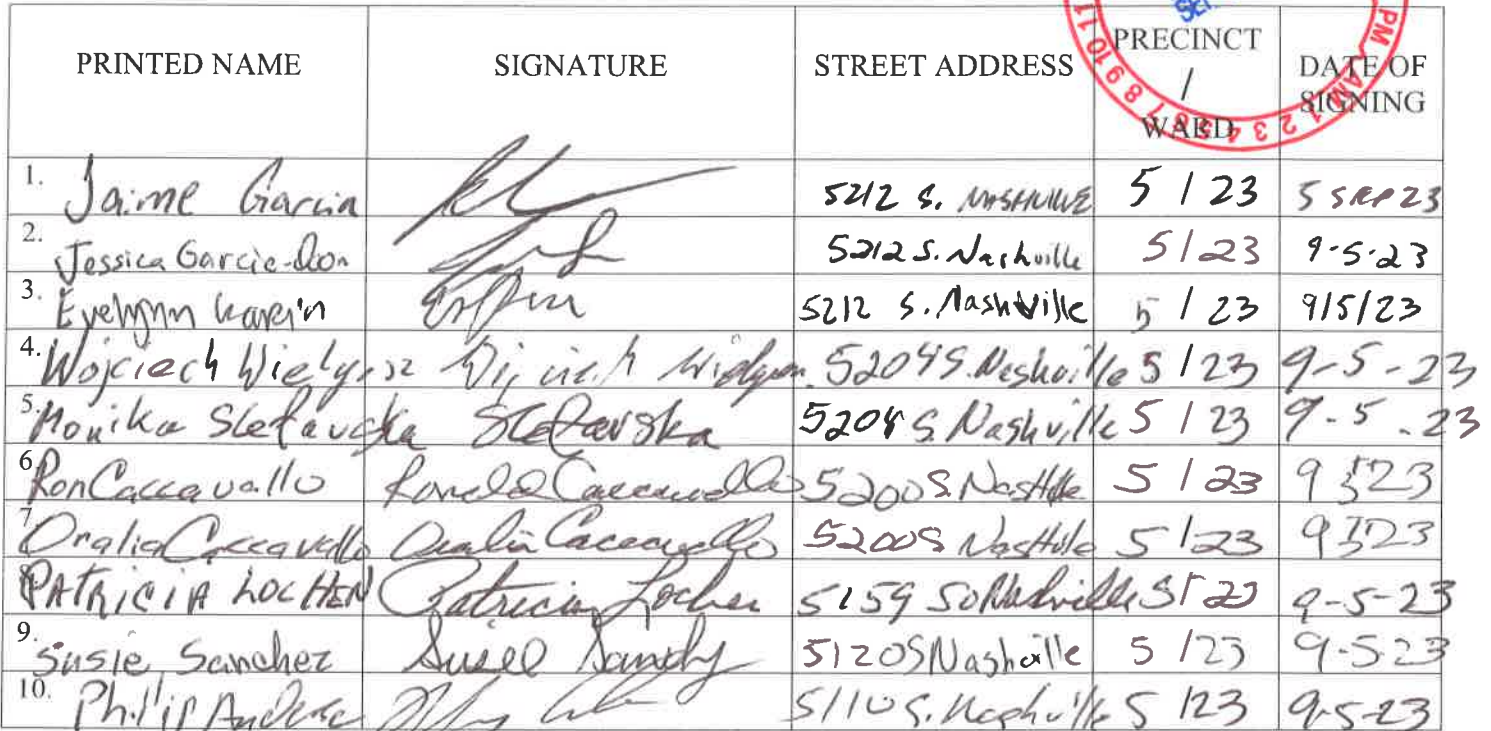 SEP
PM AM 1 2 3 4 5 6 7 8 9 10 11
PRINTED NAME SIGNATURE STREET ADDRESS PRECINCT / WARD DATE OF SIGNING
1. Jaime Garcia 5212 S. NASHVILLE 5 / 23 5 SEP 23
2. Jessica Garcia- 5212 S. Nashville 5/23 9-5-23
3. Evelynn 5212 S. Nashville 5 / 23 9/5/23
4. Wojciech 5204 S. Nashville 5 / 23 9-5-23
5. Monika Stefavska 5204 S. Nashville 5 / 23 9-5-23
6. Ron Caccavallo Ronald Caccavallo 5200 S. 5 / 23 9 5 23
7. Oralia Caccavallo Oralia Caccavallo 5200 S 5/23 9 5 23
PATRICIA LOCHEN Patricia Locher 5159 So Nashville 5/23 9-5-23
9. Susie Sanchez 5120 S Nashville 5 /23 9-5-23
10. Phillip 5110 S. Nashville 5 /23 9-5-23